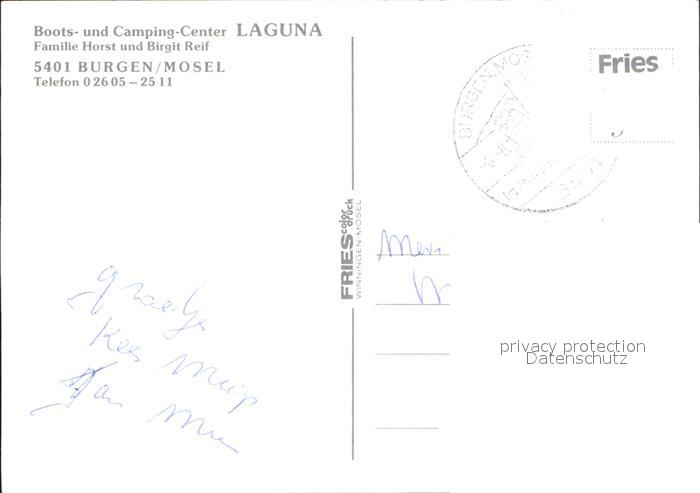 Boots- und Camping-Center LAGUNA
Familie Horst und Birgit Reif
5401 BURGEN/MOSEL
Telefon 0 26 05 – 25 11
BURGEN, MOS
Fries
FRIES color druck
WINNINGEN-MOSEL
groetjes
Kees Miep
Jan
privacy protection
Datenschutz